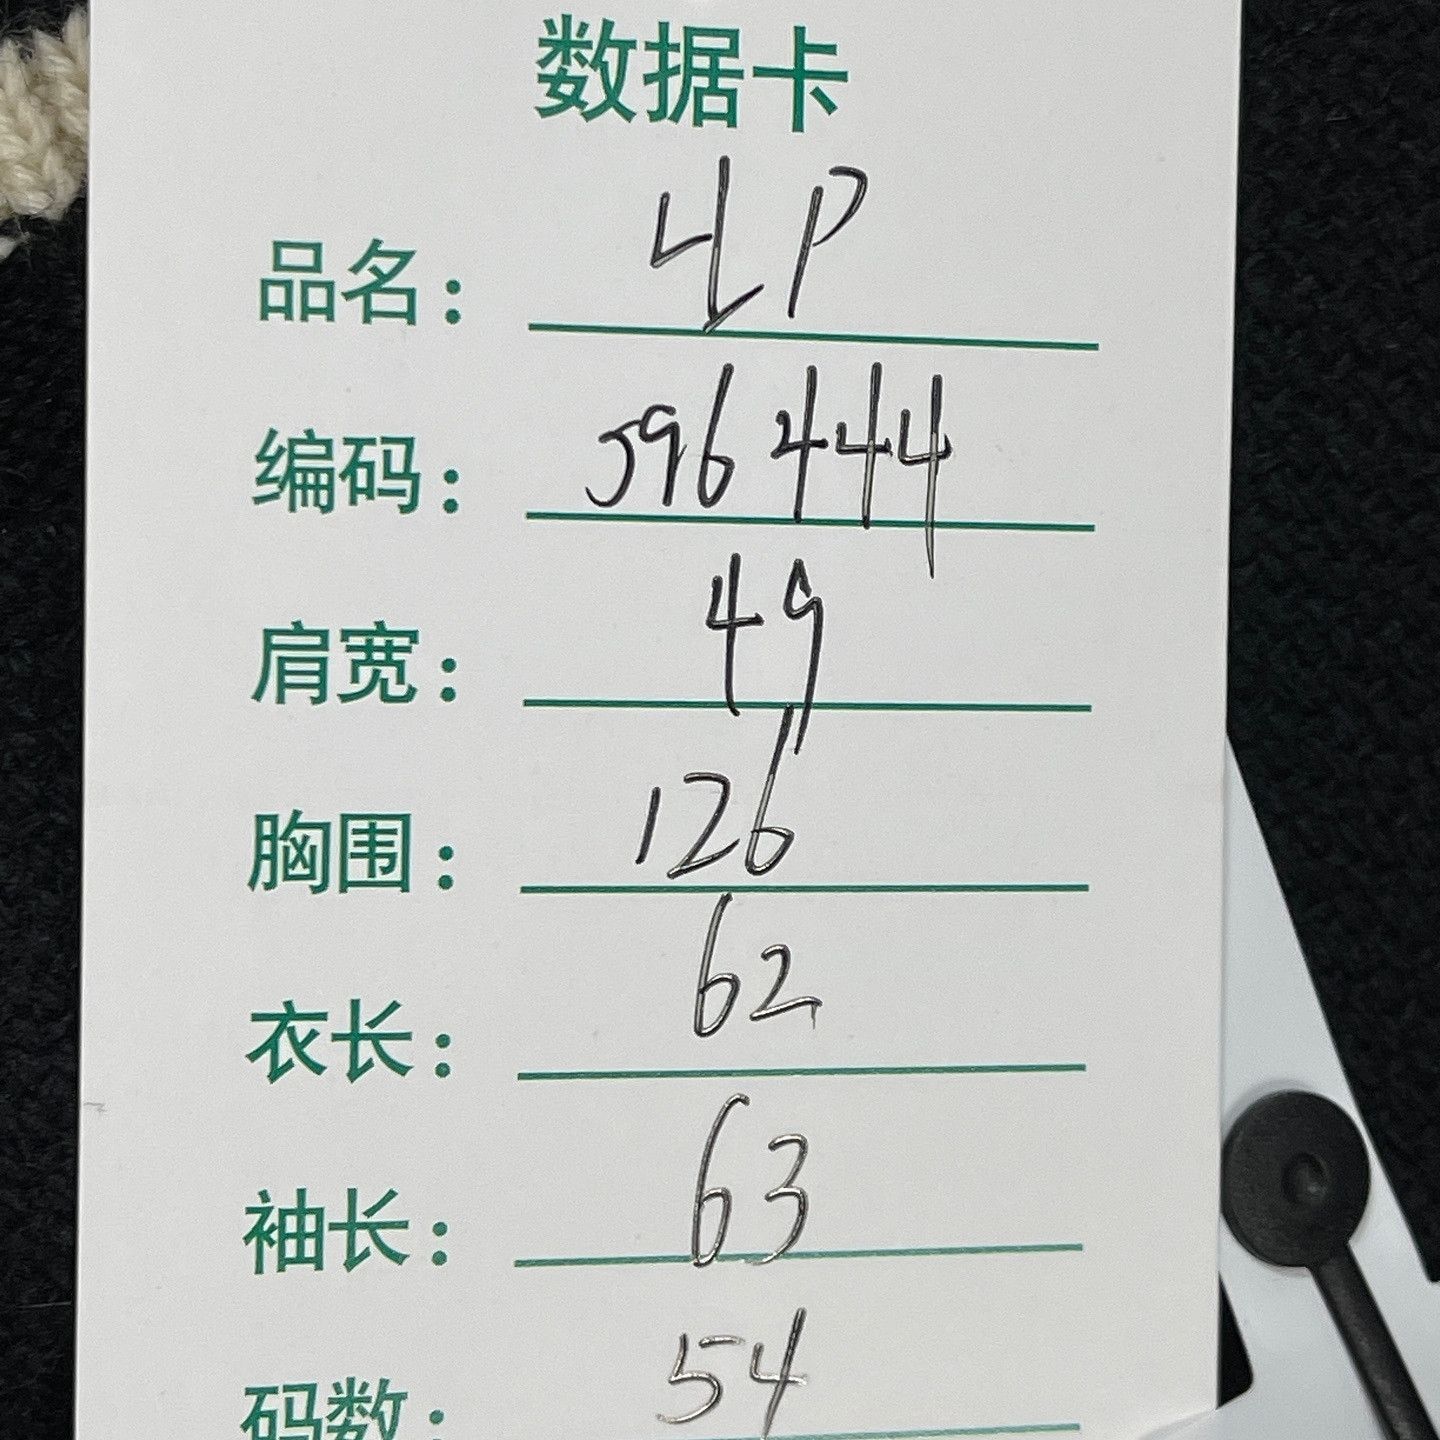 数据卡
品名： LP
编码： 596444
肩宽： 49
胸围： 126
衣长： 62
袖长： 63
码数： 54